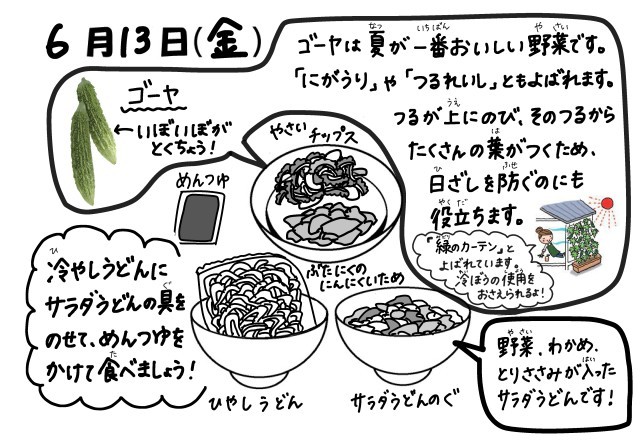 6月13日(金)
ゴーヤ
←いぼいぼが
とくちょう!
ゴーヤは夏が一番おいしい野菜です。
「にがうり」や「つるれいし」ともよばれます。
つるが上にのび、そのつるから
たくさんの葉がつくため、
日ざしを防ぐのにも
役立ちます。
「緑のカーテン」と
よばれています。
冷ぼうの使用を
おさえられるよ!
やさいチップス
めんつゆ
ぶたにくの
にんにくいため
冷やしうどんに
サラダうどんの具を
のせて、めんつゆを
かけて食べましょう!
ひやしうどん
サラダうどんのぐ
野菜、わかめ、
とりささみが入った
サラダうどんです!